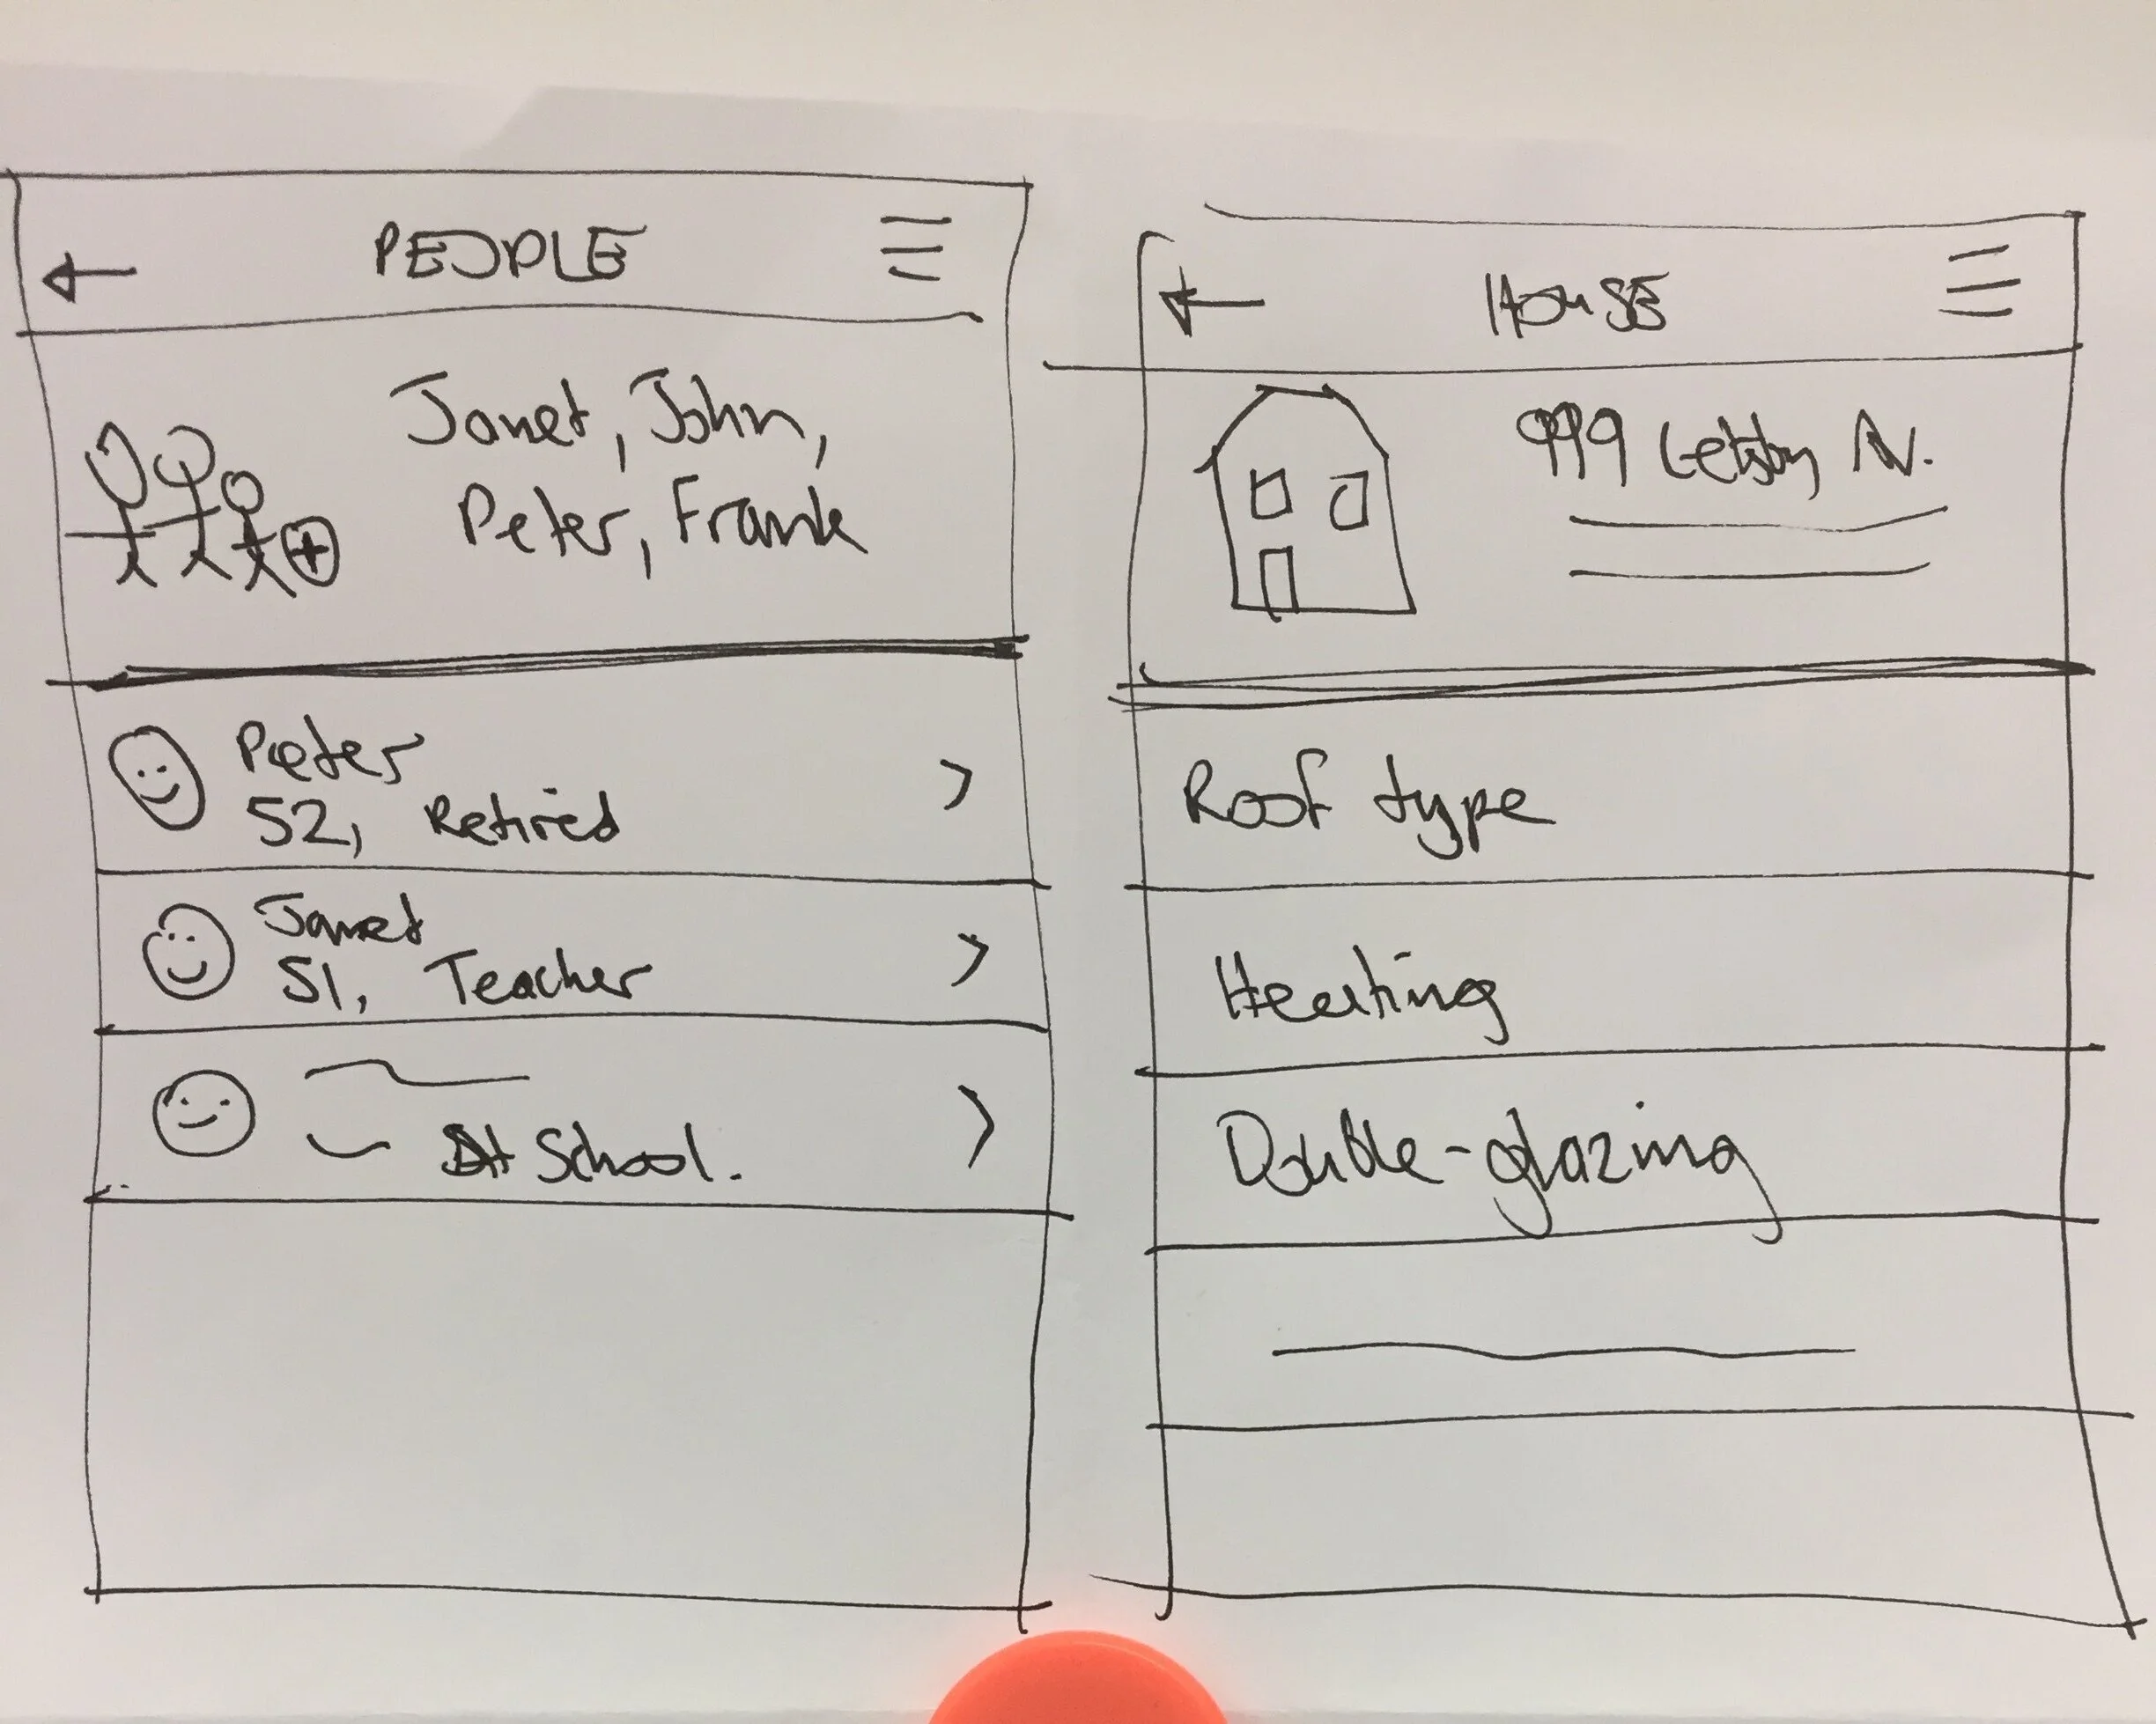 PEOPLE
Janet, John,
Peter, Frank
Peter
52, Retired
Janet
51, Teacher
At School.
HOUSE
999 Letsby Av.
Roof type
Heating
Double-glazing